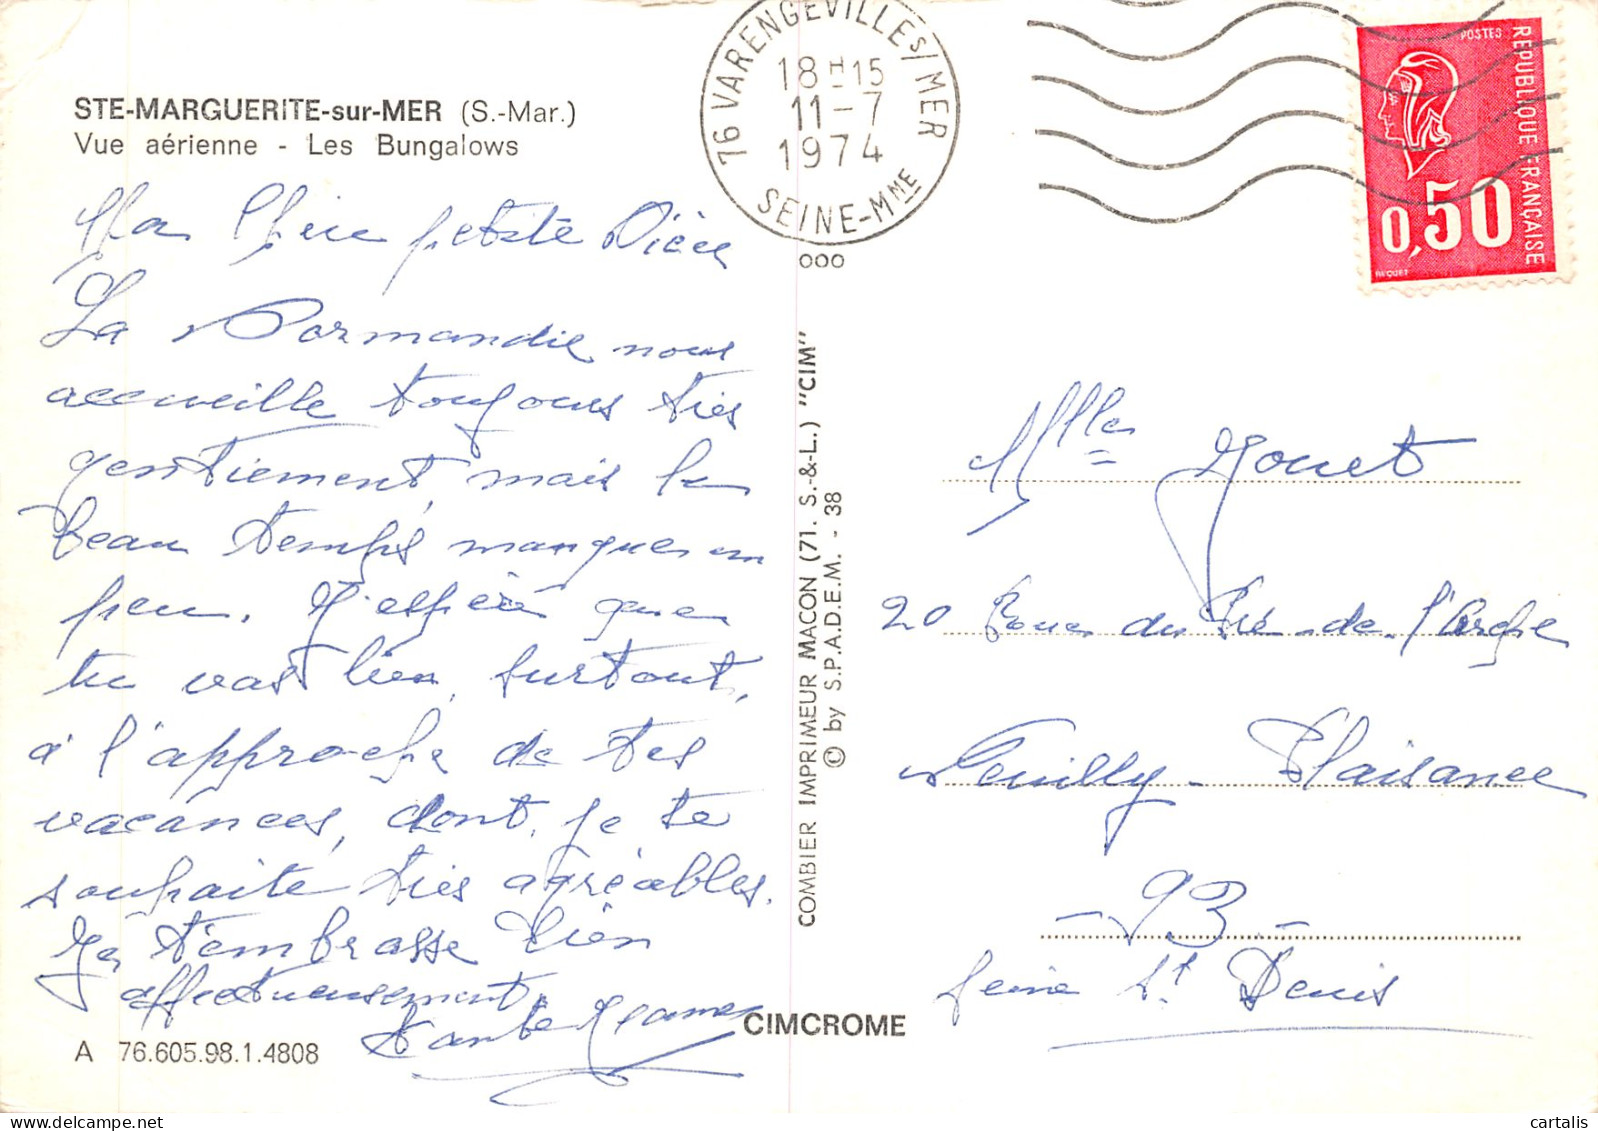 STE-MARGUERITE-sur-MER (S.-Mar.)
Vue aérienne - Les Bungalows
Ma Chère petite
La Normandie nous
accueille toujours très
gentiement, mais le
beau temps manque un
peu. J'espère que
tu vas bien, surtout,
à l'approche de tes
vacances, dont je te
souhaite très agréables.
Je t'embrasse bien
affectueusement
Tante
A 76.605.98.1.4808
76 VARENGEVILLE S/MER
18H15
11-7
1974
SEINE-MME
000
COMBIER IMPRIMEUR MACON (71. S.-&-L.) "CIM"
© by S.P.A.D.E.M. - 38
CIMCROME
POSTES
REPUBLIQUE FRANÇAISE
0,50
BEQUET
Mlle Jouet
20 Rue du Pré-de-l'Arche
Neuilly-Plaisance
- 93 -
Seine St Denis
cartalis.com